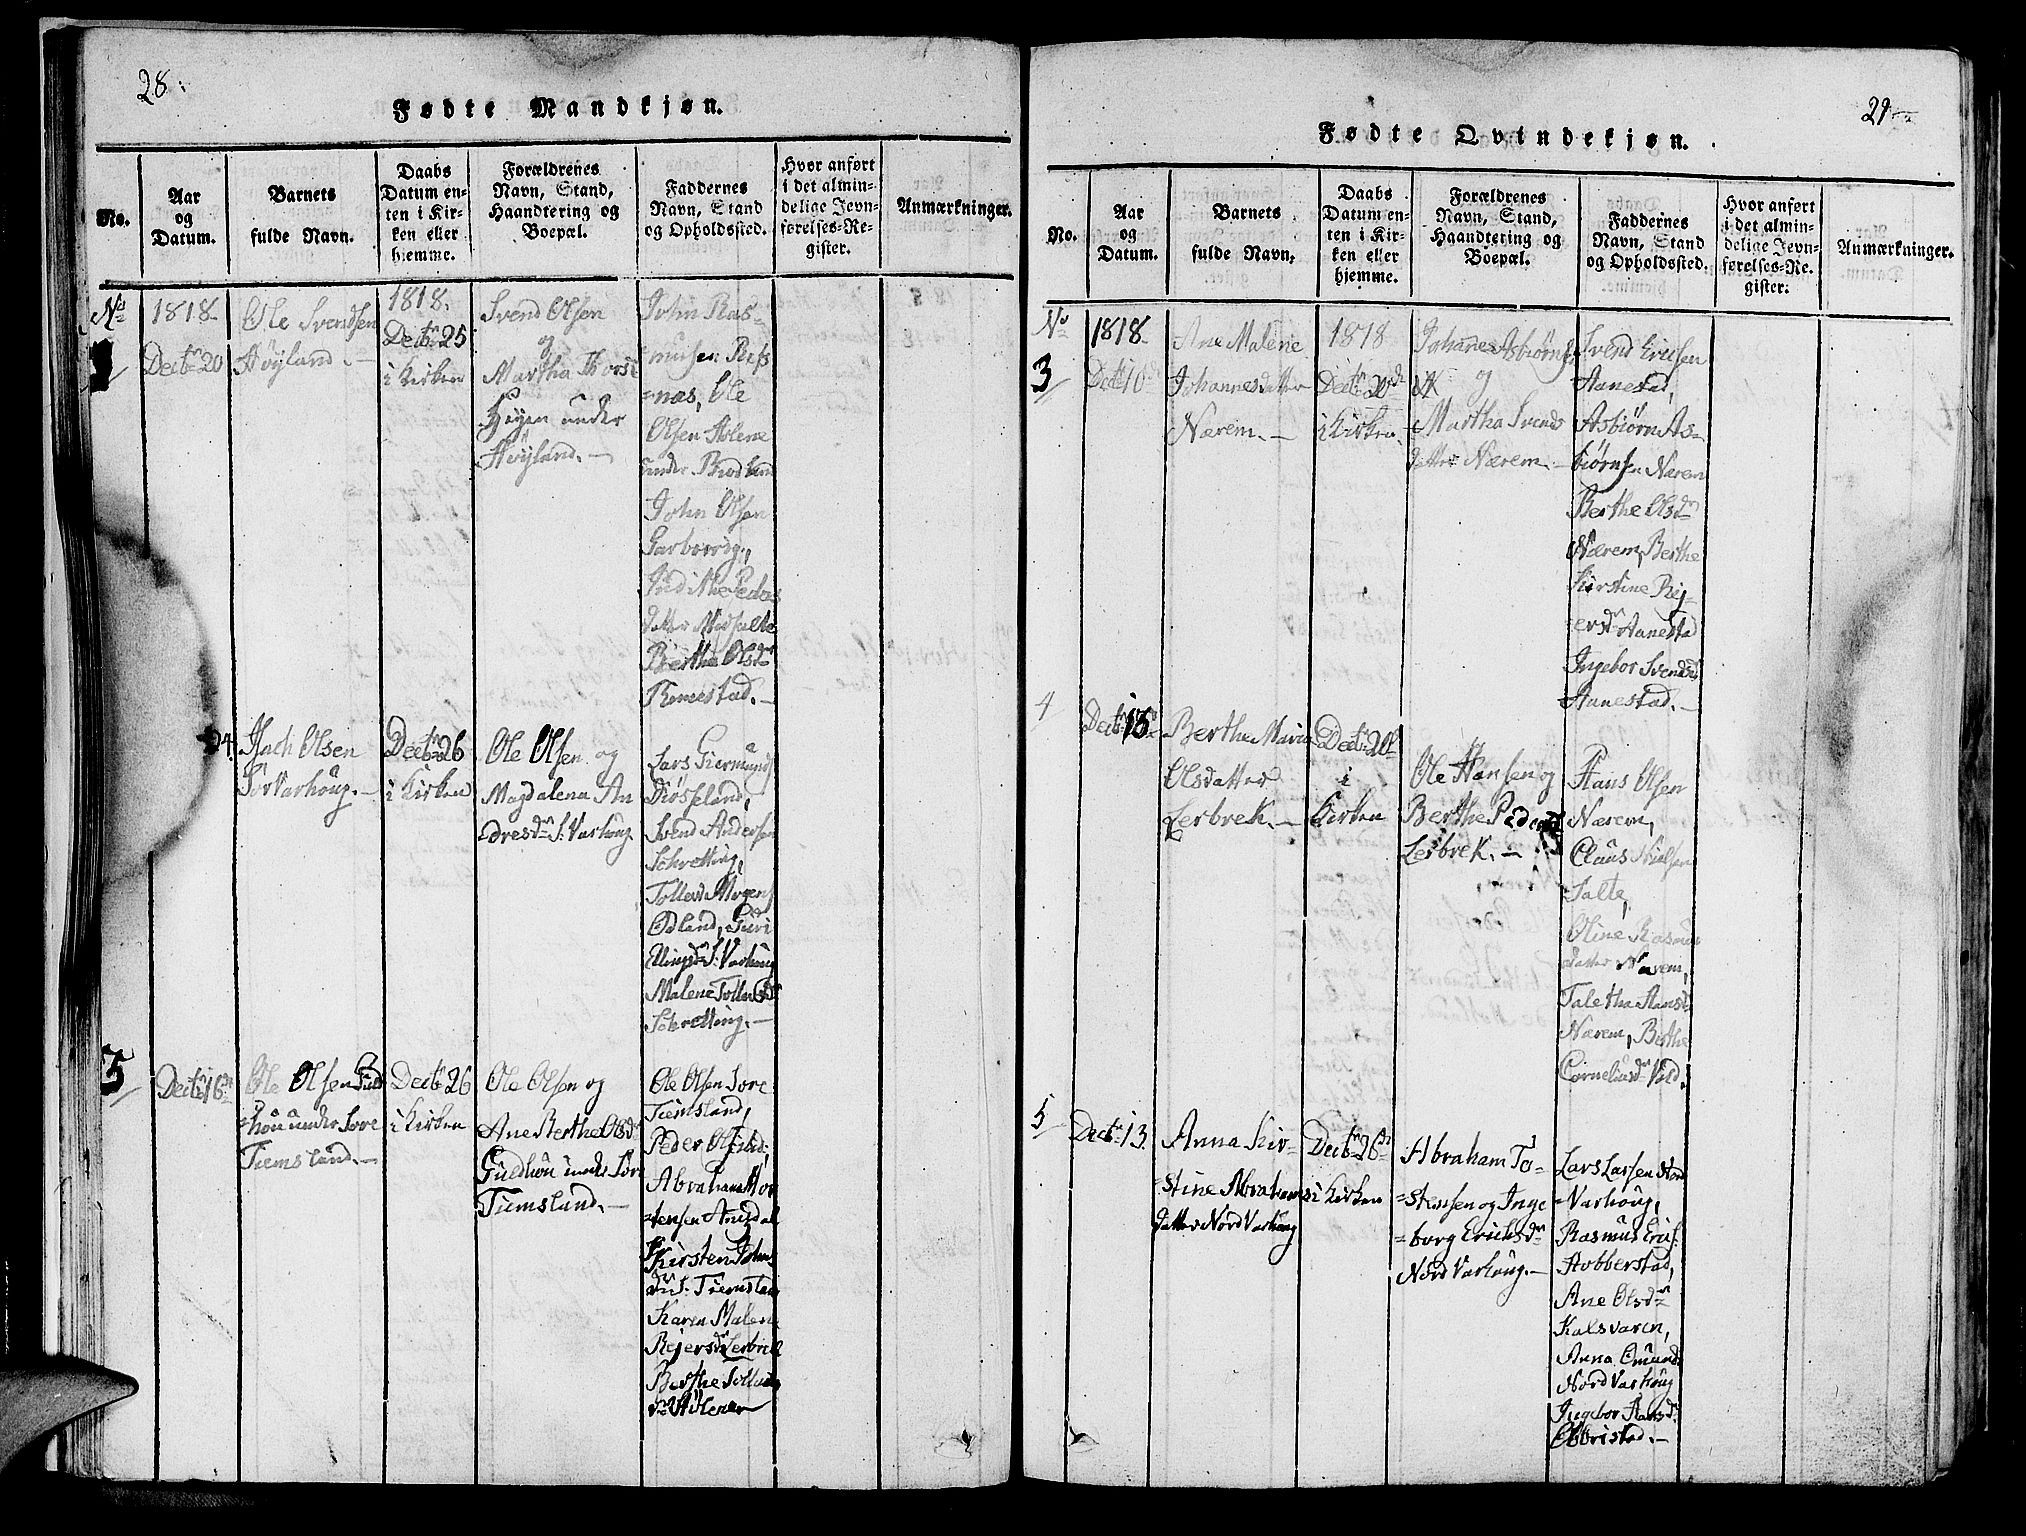 28.
Fødte Mandkjøn.
No.
Aar
og
Datum.
Barnets
fulde Navn.
Daabs
Datum en-
ten i Kir-
ken eller
hjemme.
Forældrenes
Navn, Stand,
Haandtering og
Boepæl.
Faddernes
Navn, Stand
og Opholdssted.
Hvor anført
i det almin-
delige Jevn-
førelses-Re-
gister.
Anmærkninger.
No
1818.
Decbr 20
Ole Svendsen
Høyland.-
1818.
Decbr 25
i Kirken
Svend Olsen
og
Martha Thorsd
Høyland.-
John Ras-
musen Refs
=næs, Ole
Olsen
under
John Olsen
datter
Berthe Olsdr
Olsen
Sør Varhoug.-
Decbr 26
i Kirken
Ole Olsen og
Magdalena An
dresdr S: Varhoug
Lars
Svend Andersen
Schretting,
Odland,
S: Varhoug
Malene
Schretting.-
5
Decbr 16
Ole Olsen Guld
=hou under Søre
Tiemsland.-
Decbr 26
i Kirken
Ole Olsen og
Ane Berthe Olsdr
Guldhou under Søre
Tiemsland.-
Ole Olsen Søre
Tiemsland,
Peder Olsen
Abraham Mor
=tensen
Kirsten Johns
dr S: Tiemsland
Karen Malene
Rejersdr Lerbrek
Berthe
29
Fødte Qvindekjøn.
No.
Aar
og
Datum.
Barnets
fulde Navn.
Daabs
Datum en-
ten i Kir-
ken eller
hjemme.
Forældrenes
Navn, Stand,
Haandtering og
Boepæl.
Faddernes
Navn, Stand
og Opholdssted.
Hvor anført
i det almin-
delige Jevn-
førelses-Re-
gister.
Anmærkninger.
No
3
1818.
Decbr 10
Ane Malene
Johannesdatter
Nærem.-
1818
Decbr 20
i Kirken.
Johanes Asbiørns
og
Martha Svends
datter Nærem.-
Svend Ericsen
Aanestad,
Asbiørn As-
biørnsen Nærem
Berthe Olsdr
Nærem, Berthe
Kirstine Rej-
ersdr Aanestad
Ingebor Svendsdr
Aanestad.-
4
Decbr 15
Berthe Maria
Olsdatter
Lerbrek.-
Decbr 20
i
Kirken
Ole Hansen og
Berthe Peders
Lerbrek.-
Hans Olsen
Nærem,
Claus Nielsen
Salte,
Oline Rasmus
datter Nærem,
Taletha Hansd
Nærem, Berthe
Corneliusdr
5
Decbr 13.
Anna Kir-
=stine Abrahams
datter Nord Varhoug
Decbr 26
i Kirken
Abraham To-
=stensen og Inge
=borg Ericksdr
Nord Varhoug.-
Lars Larsen Nord
Varhoug,
Rasmus Erics.
Hobberstad,
Ane Olsdr
Kalsvaren,
Anna Omunds
Nord Varhoug
Ingebor Hansdr
Obbristad.-